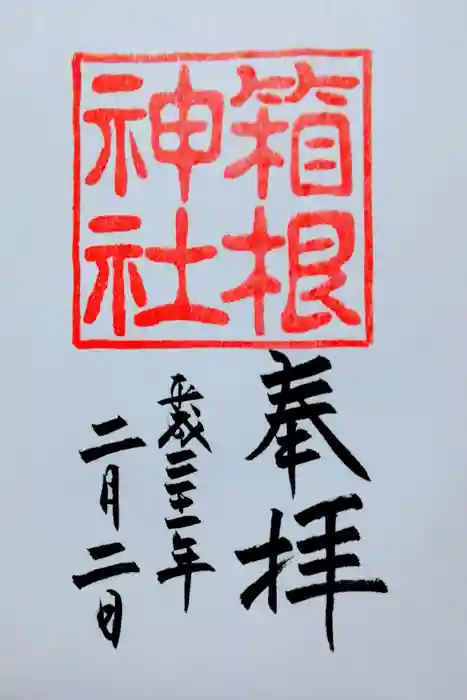 箱根
神社
奉拝
平成三十一年
二月二日